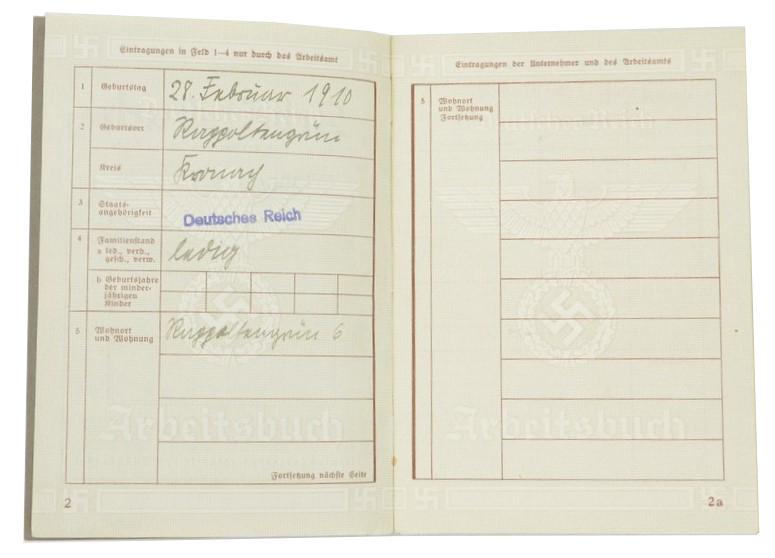 Eintragungen in Feld 1–4 nur durch das Arbeitsamt
1 Geburtstag 28. Februar 1910
2 Geburtsort Ruppoltengrün
Kreis Kronach
3 Staats-
angehörigkeit
Deutsches Reich
4 Familienstand
a led., verh.,
gesch., verw.
ledig
b Geburtsjahre
der minder-
jährigen
Kinder
5 Wohnort
und Wohnung
Ruppoltengrün 6
Fortsetzung nächste Seite
Arbeitsbuch
2
Eintragungen der Unternehmer und des Arbeitsamts
5 Wohnort
und Wohnung
Fortsetzung
Deutsches Reich
Arbeitsbuch
2a